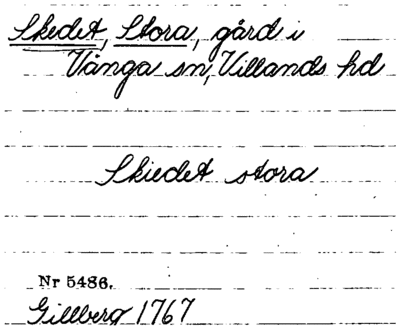 Skedet, Stora, gård i
Vånga sn, Villands hd
Skiedet stora
Nr 5486.
Gillberg 1767